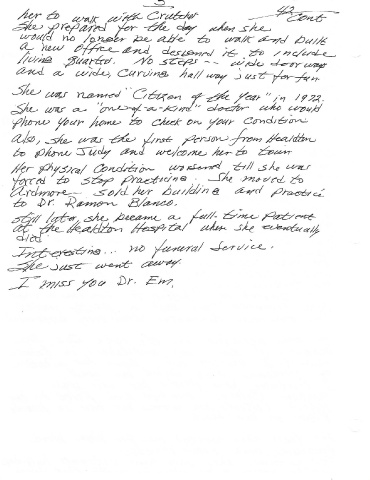 5
42
Cont
her to walk with Crutches
She prepared for the day when she
would no longer be able to walk and built
a new office and designed it to include
living quarters. No steps -- wide door ways
and a wide, curving hall way just for fun
She was named "Citizen of the Year" in 1972.
She was a "one-of-a-kind" doctor who would
phone your home to check on your condition
Also, she was the first person from Healdton
to phone Judy and welcome her to town
Her physical condition worsened till she was
forced to stop practicing. She moved to
Ardmore - sold her building and practice
to Dr. Ramon Blanco.
Still later, she became a full-time patient
at the Healdton Hospital when she eventually
died
Interesting... no funeral service.
She just went away.
I miss you Dr. Em.